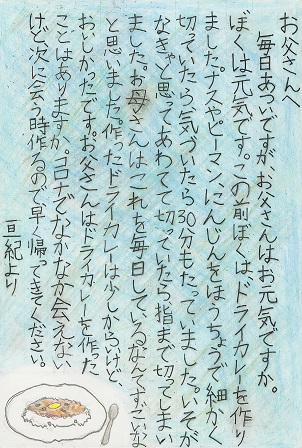 お父さんへ
毎日あついですが、お父さんはお元気ですか。
ぼくは元気です。この前ぼくはドライカレーを作り
ました。ナスやピーマン、にんじんをほうちょうで細かく
切っていたら、気づいたら30分もたっていました。いそが
なきゃと思ってあわてて切っていたら指まで切ってしまい
ました。お母さんはこれを毎日しているなんてすごいな
と思いました。作ったドライカレーは少しからいけど、
おいしかったです。お父さんはドライカレーを作った
ことはありますか。コロナでなかなか会えない
けど次に会う時作るので早く帰ってきてください。
亘紀より